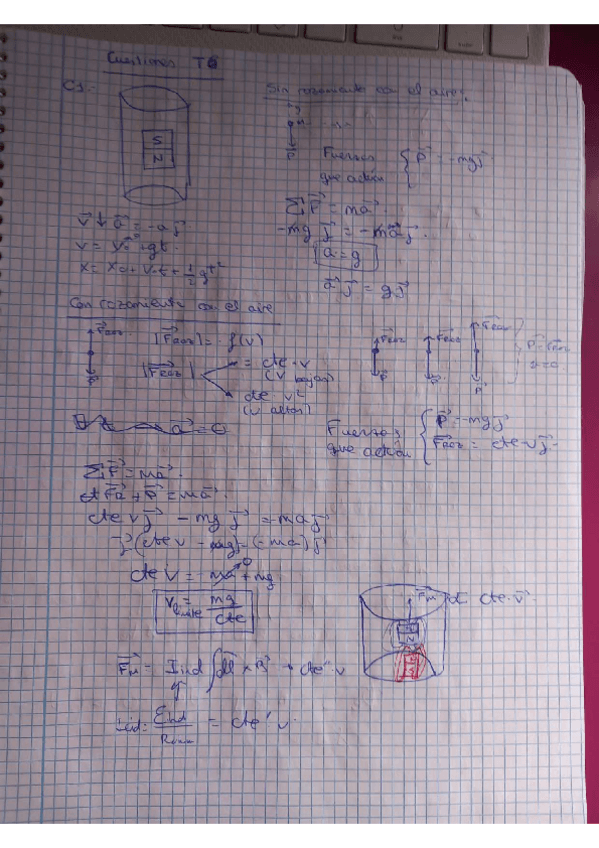 Cuestiones T6
C1.-
Sin rozamiento con el aire:
S
N
P
Fuerzas que actúan { P = -mg j
v ↓ a = -a j
v = v₀ + gt
x = x₀ + v₀t + 1/2 gt²
∑F = ma
-mg j = -ma j
a = g
a j = g j
Con rozamiento con el aire
Froz
P
|Froz| = f(v)
|Froz| = cte·v (v bajas)
cte v² (v altas)
Froz Froz Froz
P P P
P = Froz
a = 0
a = 0
Fuerzas que actúan { P = -mg j
Froz = cte·v j
∑F = ma
+ P = ma
cte v j - mg j = -ma j
j (cte v - mg) = (-ma) j
cte v = -ma + mg
0
v límite = mg/cte
Fm ∝ cte·v
N
S
Fm = Iind ∫ dl × B → cte''·v
Iind = Eind/R = cte' v